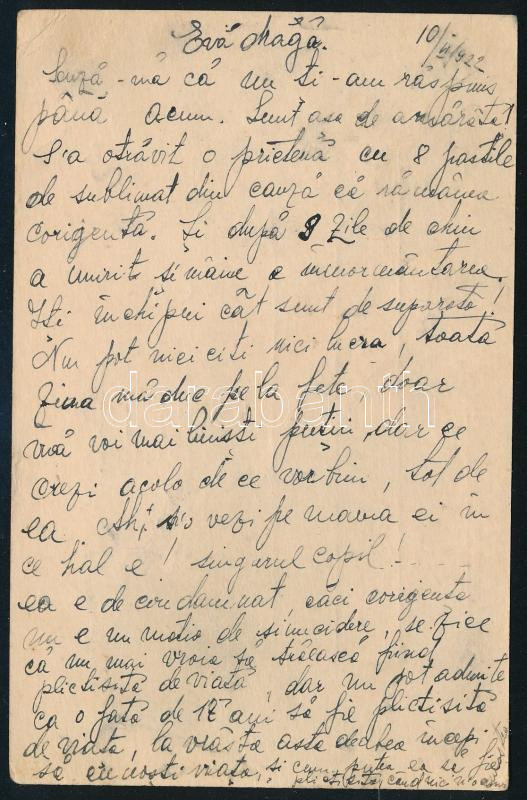 Evă dragă. 10/VI/922
Scuză-mă că nu ti-am răspuns
până acum. Sunt asa de amărâtă!
S'a otrăvit o prietenă cu 8 pastile
de sublimat din cauză că rămânea
corigentă. Si după 8 zile de chin
a murit si mâine e înmormântarea.
Iti închipui cât sunt de supărată!
Nu pot nici citi nici lucra, toată
ziua mă duc pe la fete, doar
voi mai linisti putin, dar ce
crezi acolo de ce vorbim, tot de
ea. Ah, s'o vezi pe mama ei în
ce hal e! singurul copil!
ea e de condamnat, căci corigenta
nu e un motiv de sinucidere, se zice
că nu mai vroia să trăiască fiind
plictisită de viată, dar nu pot admite
ca o fată de 17 ani să fie plictisită
de viată, la vrâsta asta deabea începi
să cunosti viata, si cum putea ea să fie
plictisită când nici n'o
darabanth